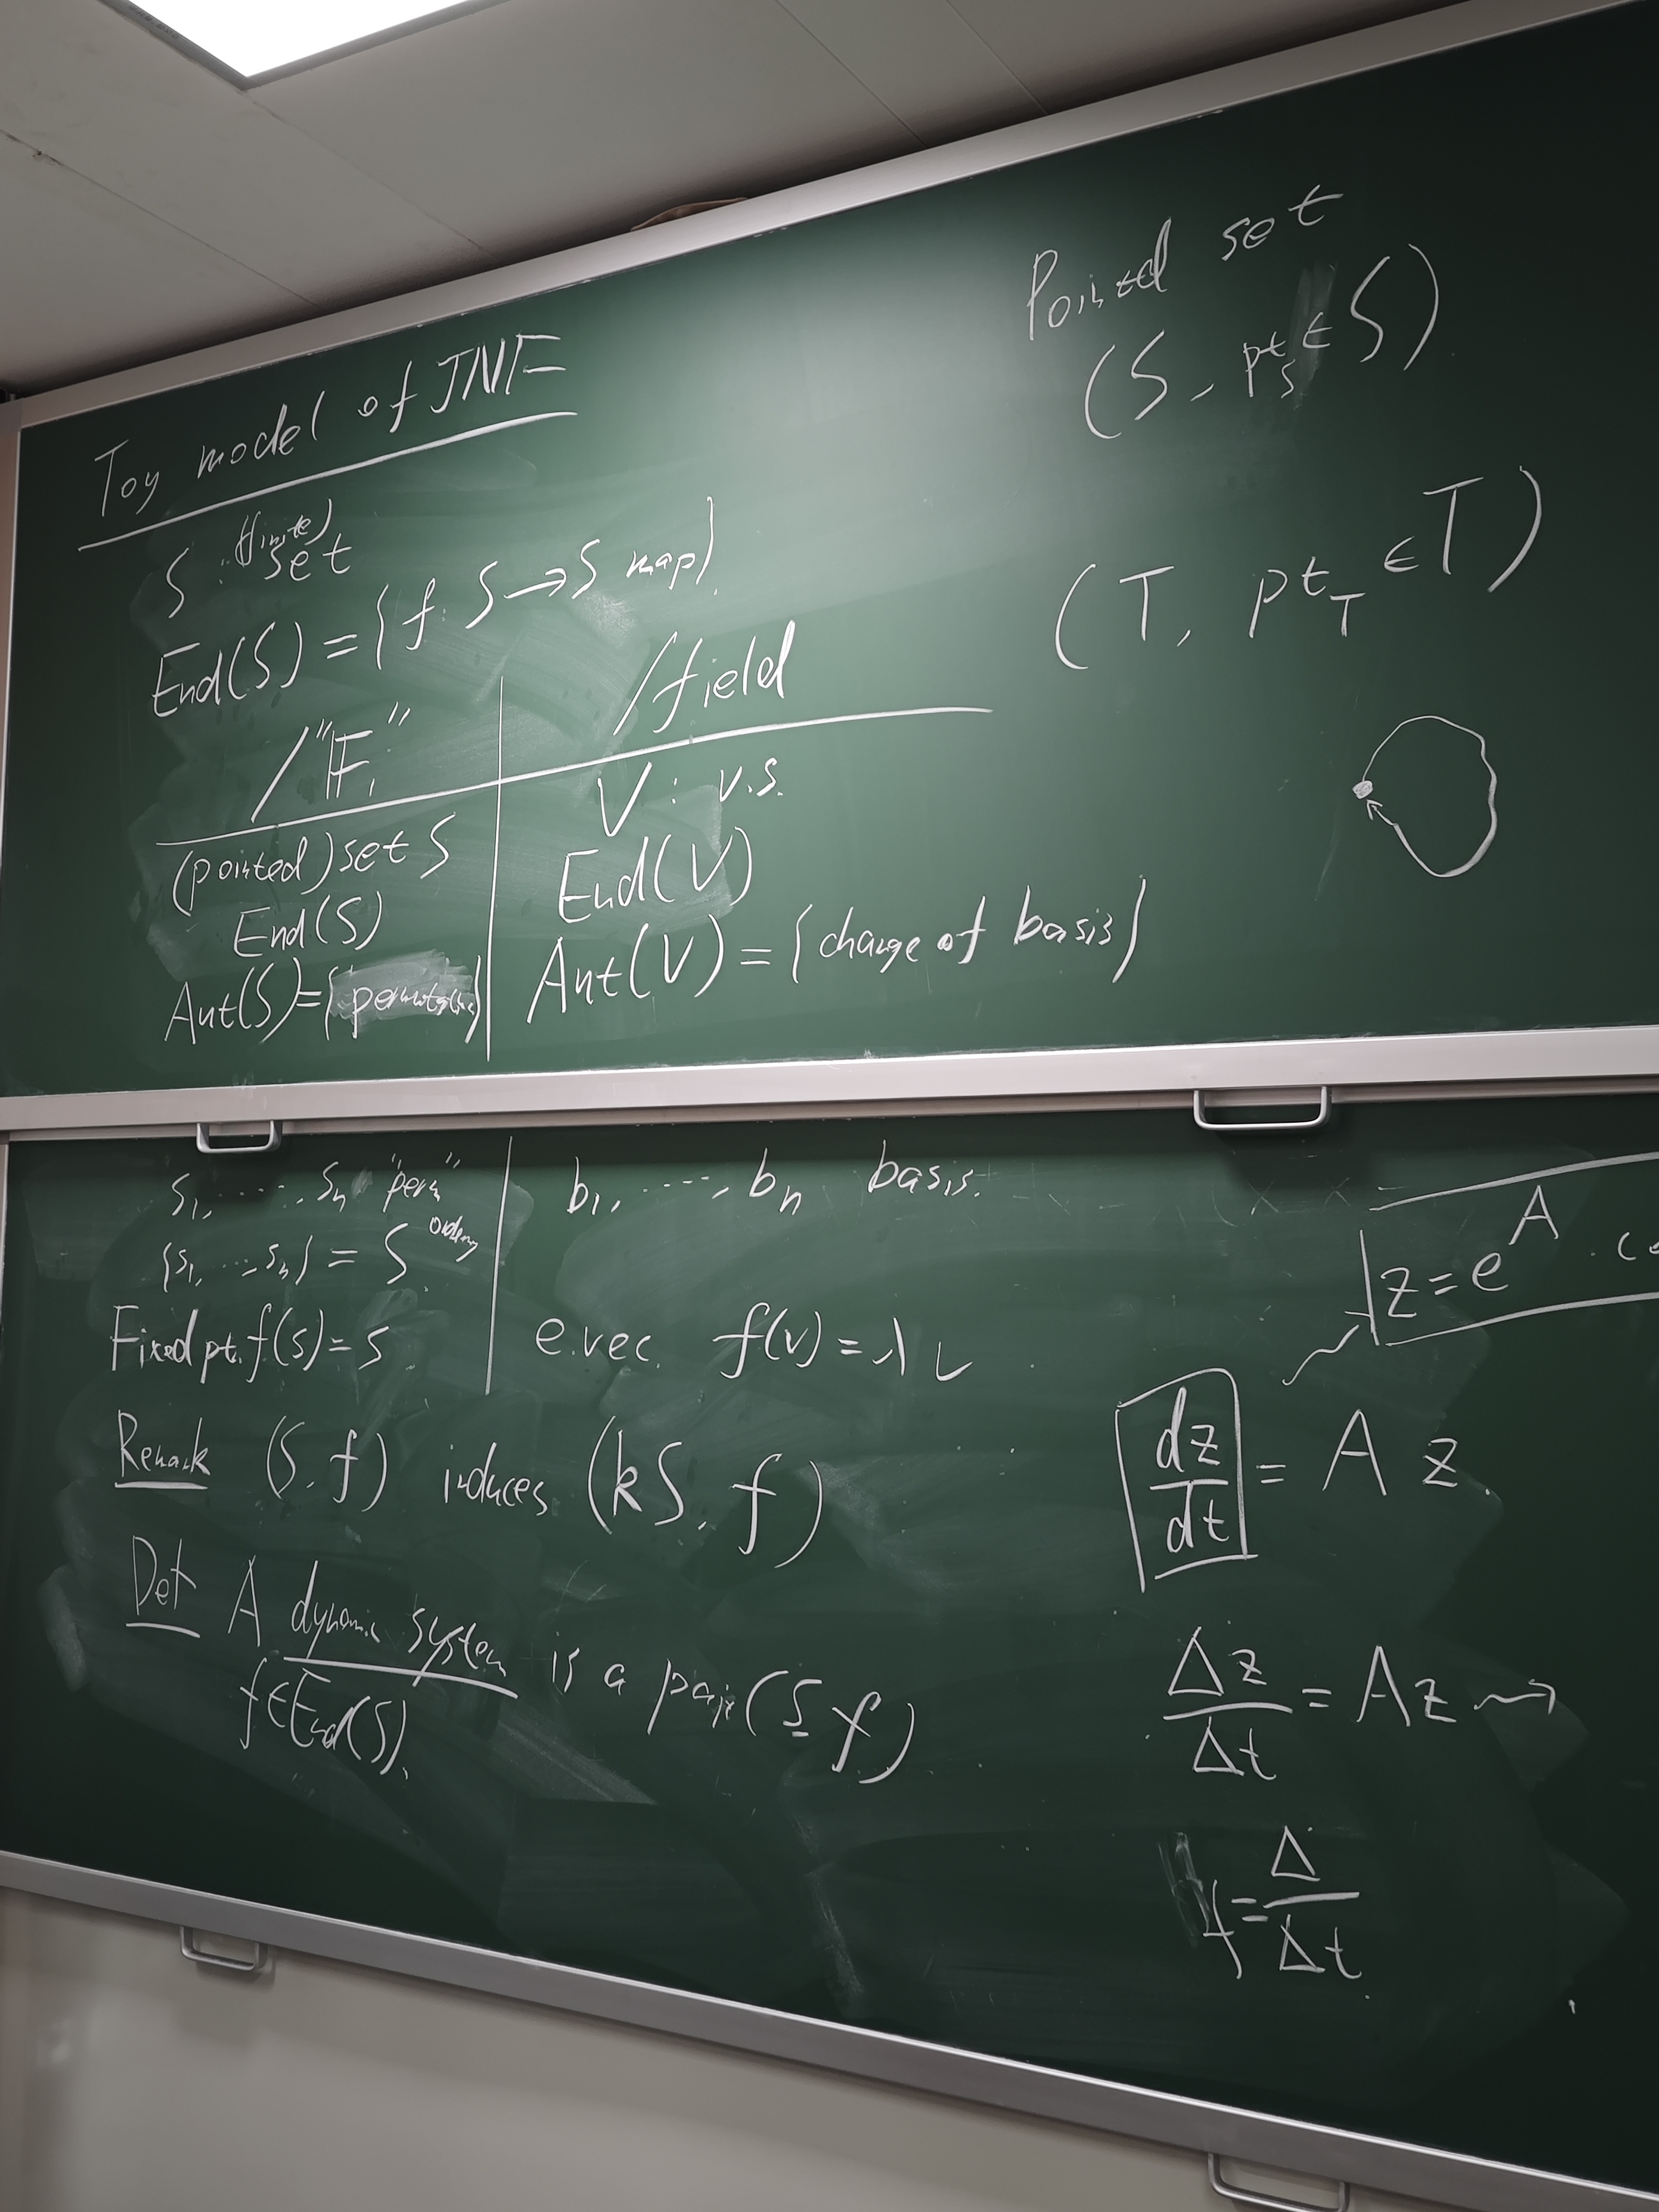 Toy model of JNF
S : (finite) set
End(S) = {f: S → S map}
/"F₁" | /field
(pointed) set S | V : v.s.
End(S) | End(V)
Aut(S) = {permutation} | Aut(V) = {change of basis}
Pointed set
(S, pt_S ∈ S)
(T, pt_T ∈ T)
s₁, ....., sₙ "perm" | b₁, ....., bₙ basis.
{s₁, ..., sₙ} = S ordering
Fixed pt. f(s) = s | e.vec. f(v) = λv
Remark (S, f) induces (kS, f)
Def A dynamic system is a pair (S, f)
f ∈ End(S).
z = e^A ·
dz/dt = A z.
Δz/Δt = Az ⇝
f = Δ/Δt